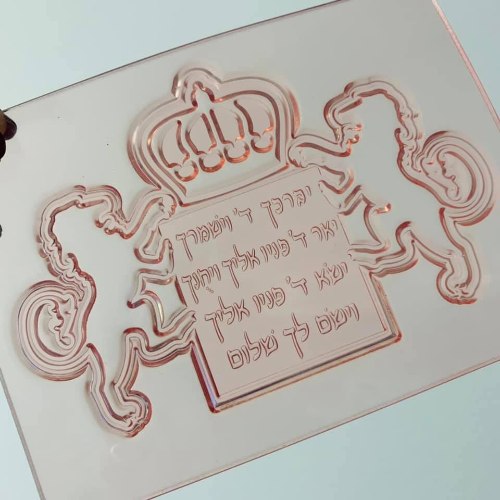 יברכך ד' וישמרך
יאר ד' פניו אליך ויחנך
ישא ד' פניו אליך
וישם לך שלום